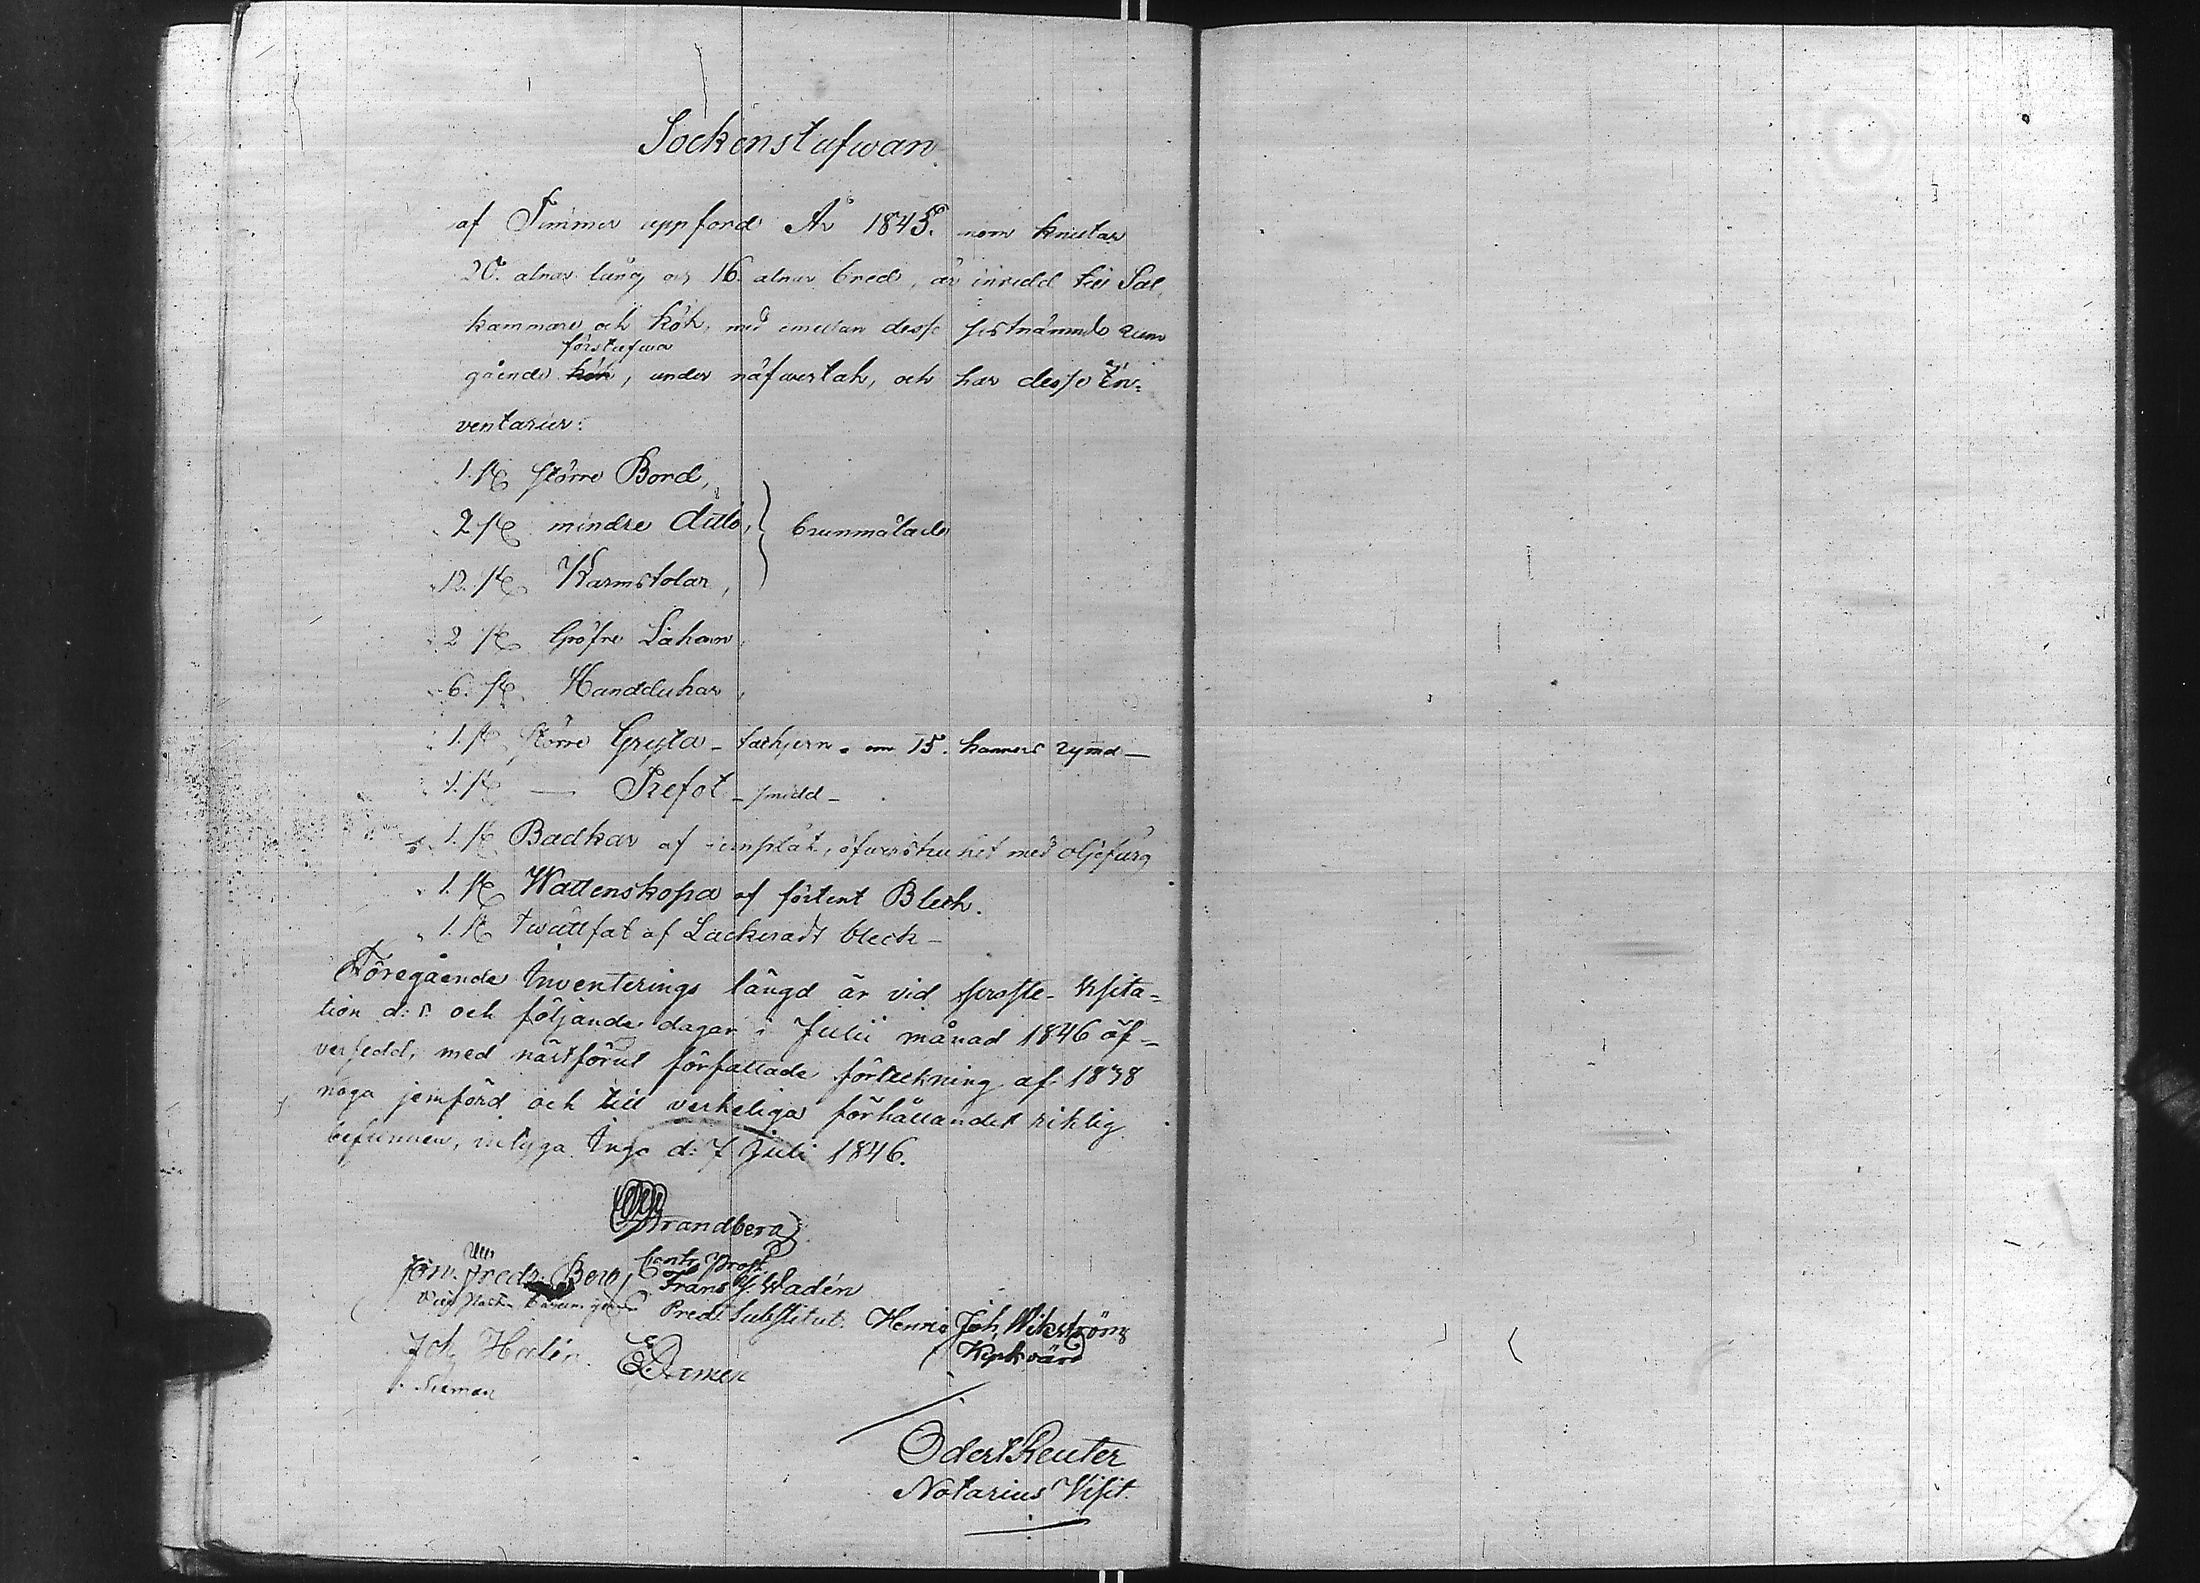 Sockenstufwan.
af Timmer uppförd År 1845. inom knutar
20. alnar lång och 16. alnar bred, är inredd till Sal,
kammare och kök, med emellan desse sistnämnde rum
förstufwa
gående kök, under näfwertak, och har desse In-
ventarier:
1. st. större Bord,
2 st. mindre ditto, } brunmålade
12. st. Karmstolar,
2 st. Gröfre Lakan,
6. st. Handdukar,
1. st. större Gryta – tackjern – om 15. kannors rymd –
1. st. — Trefot – smidd –
1. st. Badkar af jernplåt, öfwerstruket med oljefärg
1. st. Wattenskopa af förtent Bleck.
1. st. twättfat af Lackeradt bleck –
Föregående Inventerings längd är vid Prosste-Visita-
tion d: 5. och följande dagar i Julii månad 1846 öf-
versedd, med nästförut författade förteckning af 1838
noga jemförd och till verkeliga förhållandet riktig
befunnen, intyga. Ingo d: 7 Juli 1846.
Strandberg
Contr. Prost.
Fredr. Berg
Frans G. Wadén
Pred: Substitut. Henric Joh. Wikström
Kyrkvärd
Joh. Hedén
E. Ekman
Odert Reuter
Notarius Visit.